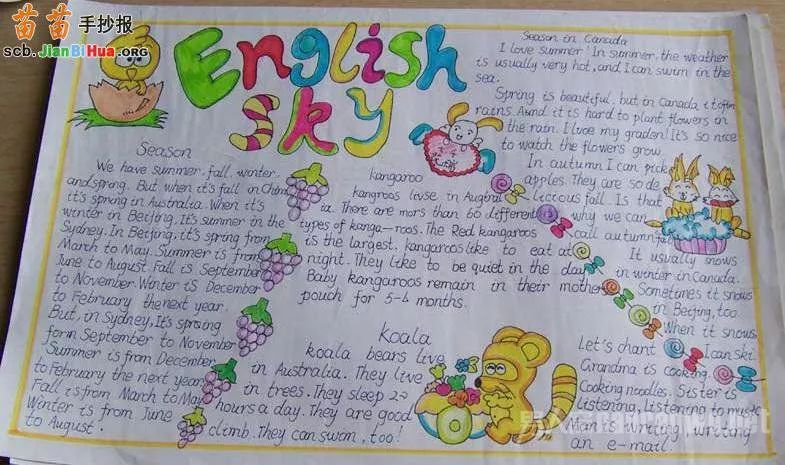 苗苗手抄报
scb.JianBiHua.org
English
sky
Season
We have summer, fall, winter
and sprang. But when it's fall in China
it's sprang in Australia. When it's
winter in Beijing. It's summer in the
Sydney. In Beijing, it's spring from
March to May. Summer is from
June to August Fall is September
to November. Winter is December
to February the next year.
But, in Sydney, It's spring
form September to November
Summer is from December
to February the next year
Fall is from March to May
Winter is from June
to August.
kangaroo
kangroos livse in Augtral
ia. There are mors than 60 different
types of kanga-roos. The Red kangaroos
is the largest. kangaroos like to eat at
night. They like to be quiet in the day
Baby kangaroos remain in their mother
pouch for 5-6 months.
Koala
koala bears live
in Australia. They live
in trees. They sleep 20
hours a day. They are good
climb. They can swm, too!
Season in Canada
I love summer In summer, the weather
is usually very hot, and I can swim in the
sea.
Spring is beautiful, but in Canada it often
rains. Aund it is hard to plant flowers in
the rain. I lvoe my graden! It's so nice
to watch the flowers grow.
In autumn I can pick
apples. They are so de
licious fall. Is that
why we can
call autumn fall
It usually snows
in winter in Canada.
Sometimes it snows
in Beijing, too
When it snows
I can ski.
Let's chant
Grandma is cooking,
Cooking noodles. Sister is
listening, Listening to music
Man is writing, writing
an e-mail.